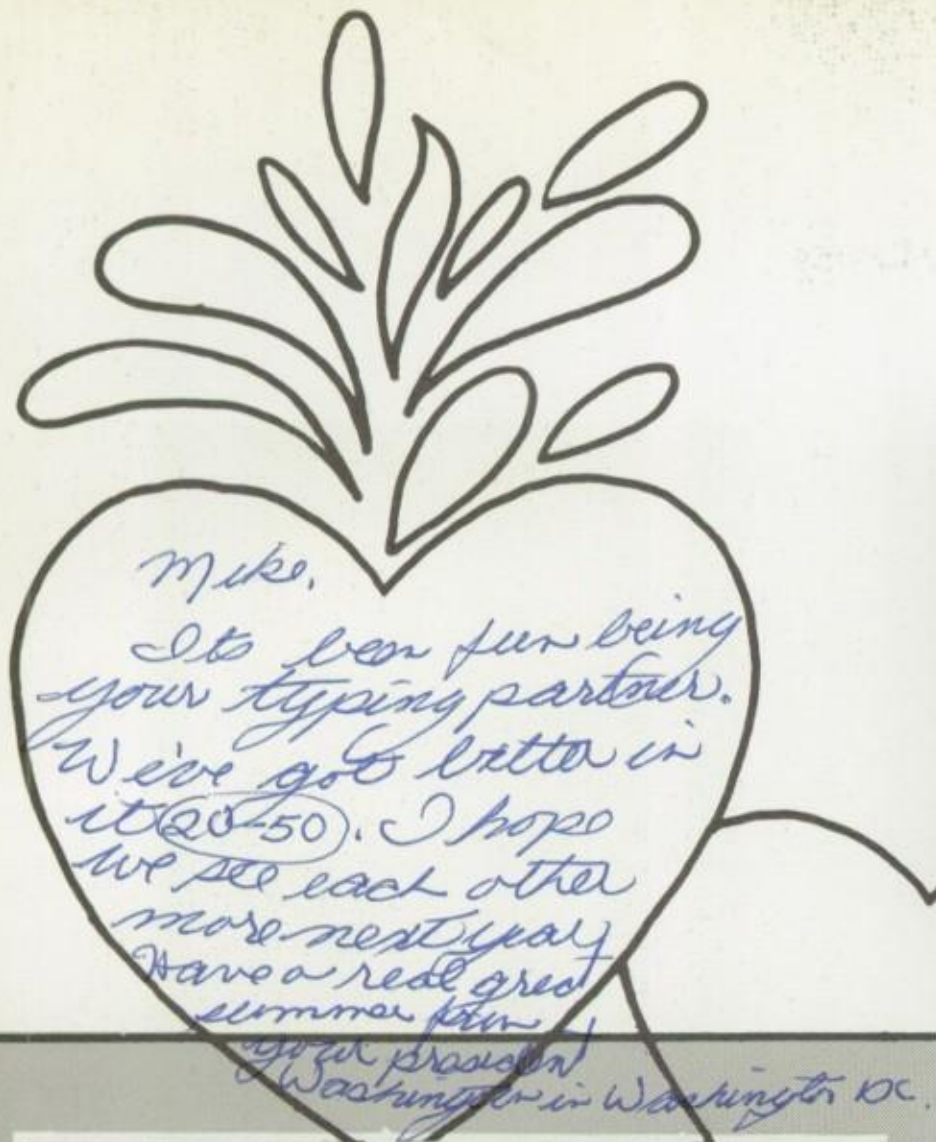 Mike,
Its been fun being
your typing partner.
We've got better in
it 20-50. I hope
we see each other
more next year
Have a real great
summer from
your president
Washington in Washington DC.